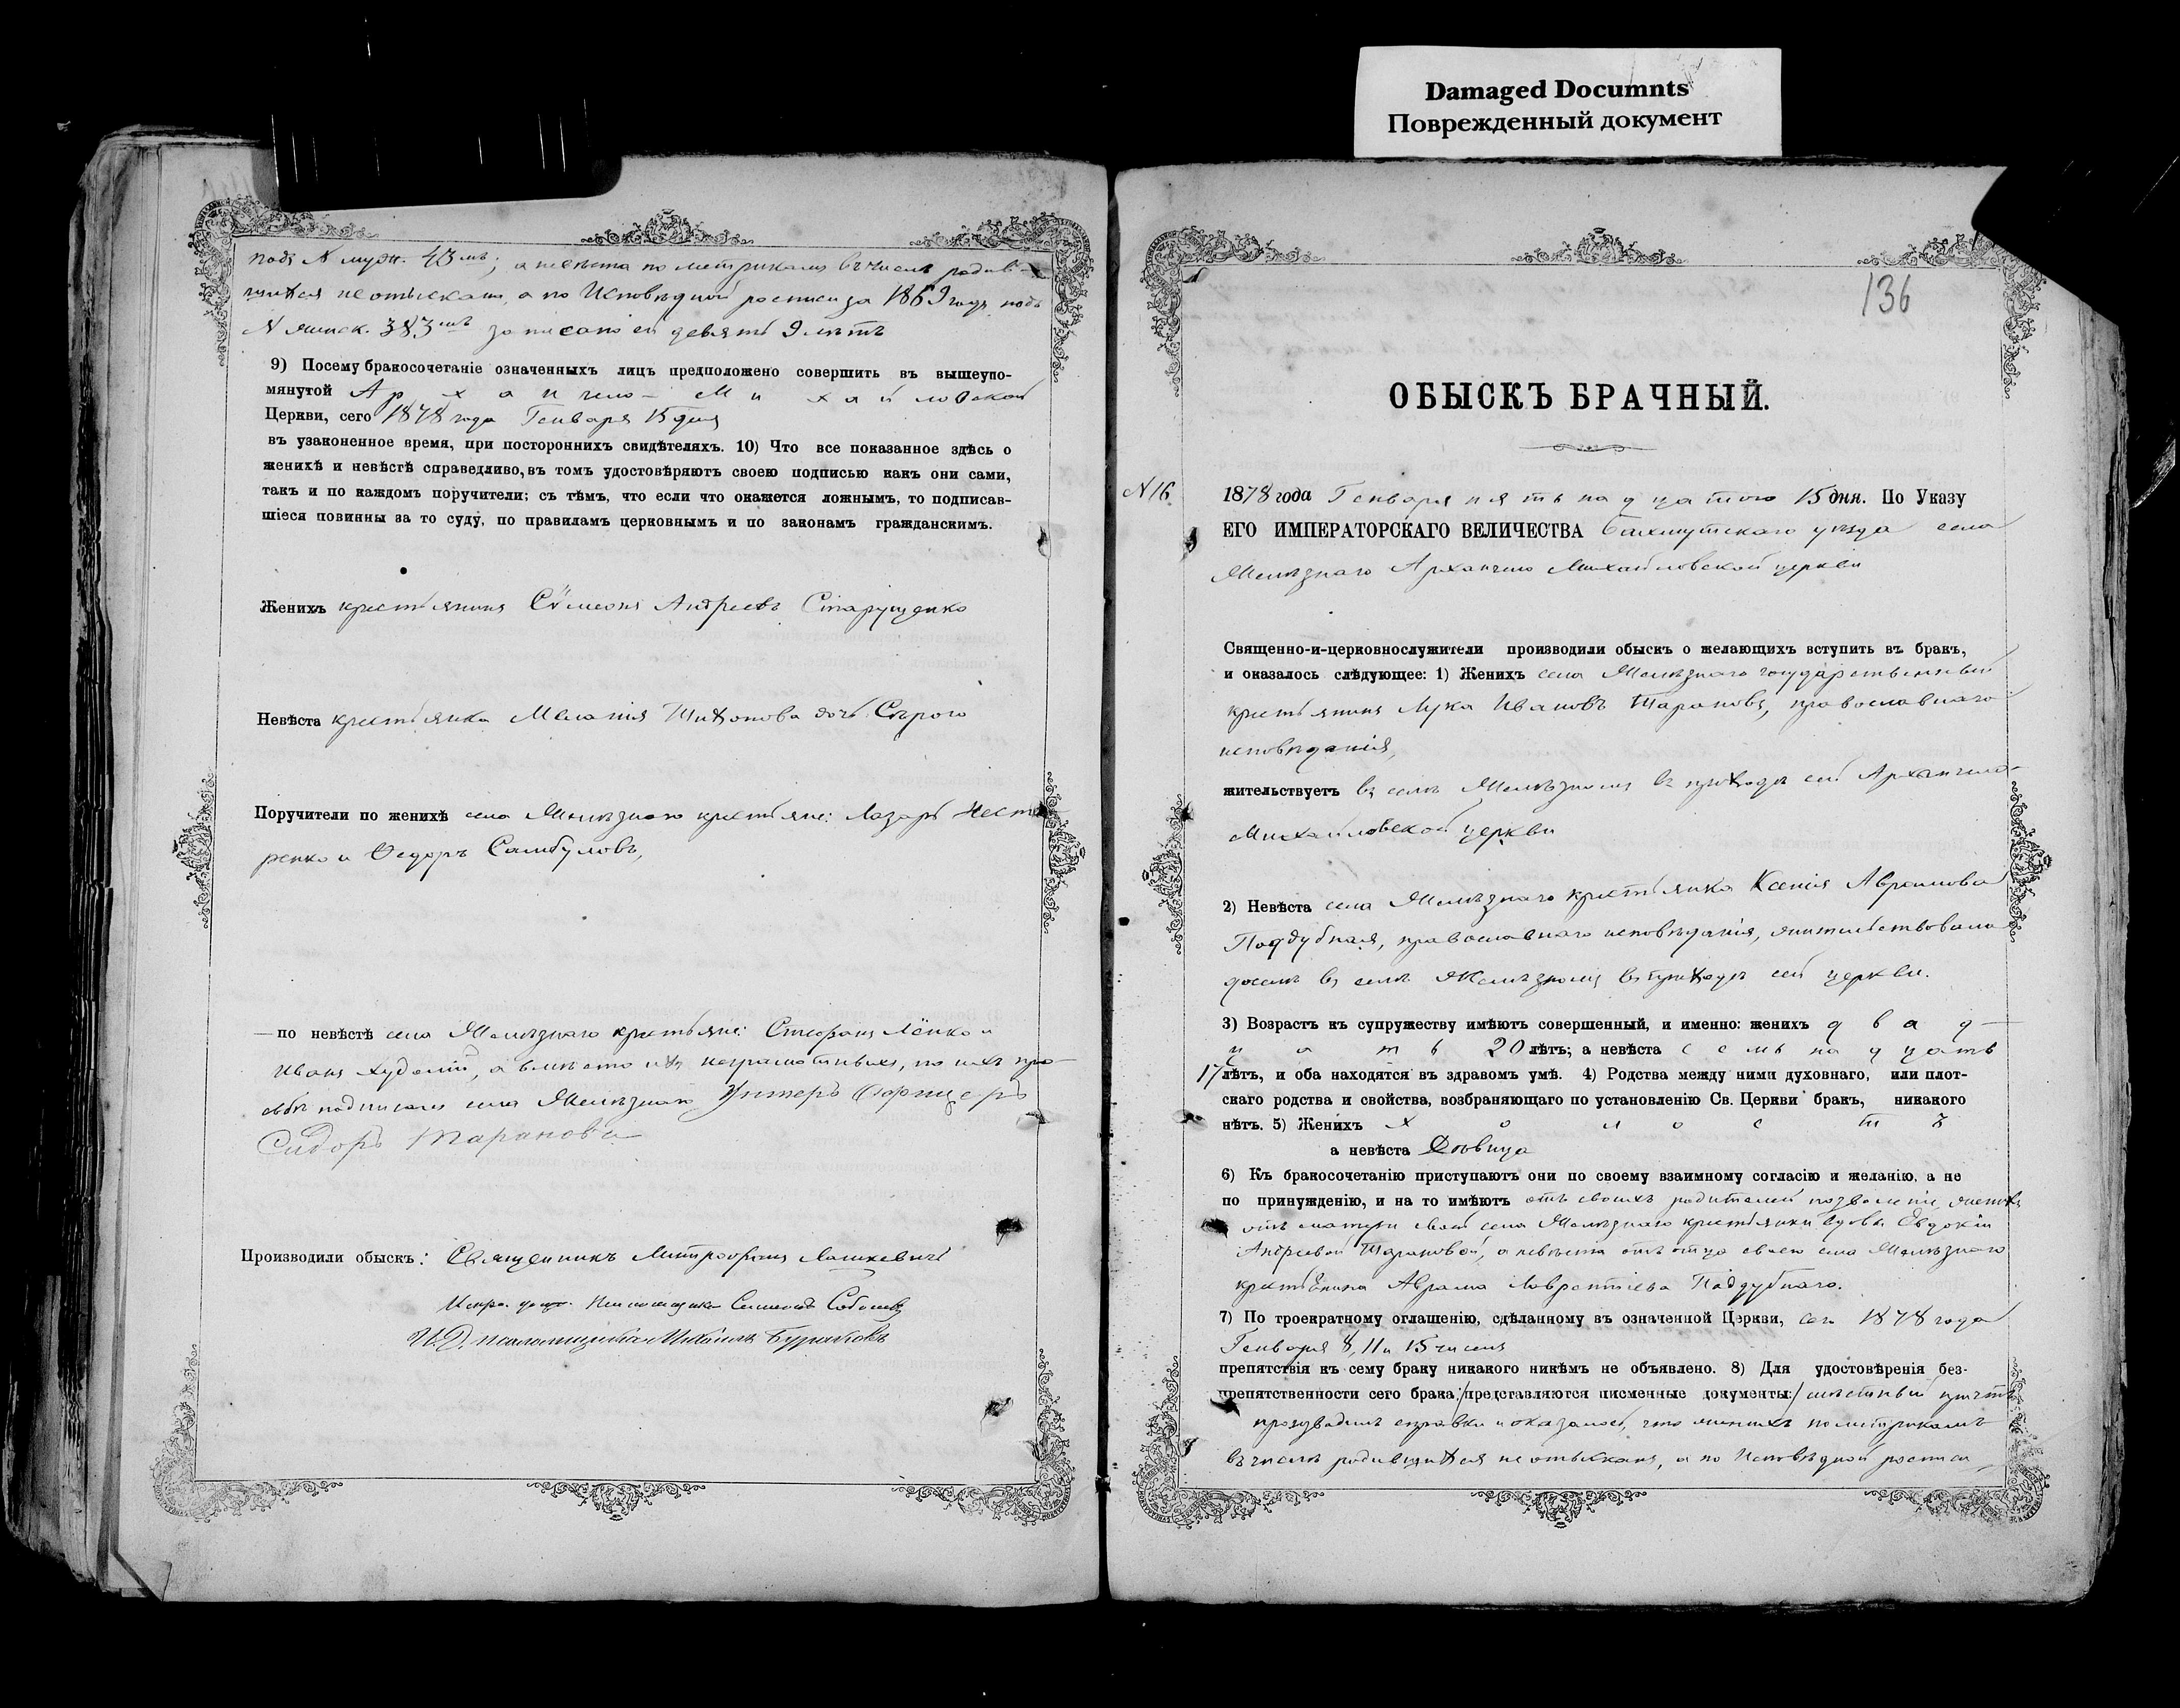 Damaged Documnts
Поврежденный документ
подъ N муж. 43мъ; а невѣста по метрикамъ въ числѣ родив-
шихся не отыскана, а по Исповѣдной росписи за 1869 годъ подъ
N женск. 383мъ записано ей девять 9 лѣтъ
9) Посему бракосочетаніе означенныхъ лицъ предположено совершить въ вышеупо-
мянутой Архангело-Михайловской
Церкви, сего 1878 года Генваря 15 дня
въ узаконенное время, при постороннихъ свидѣтеляхъ. 10) Что все показанное здѣсь о
женихѣ и невѣстѣ справедливо, въ томъ удостовѣряютъ своею подписью какъ они сами,
такъ и по каждомъ поручители; съ тѣмъ, что если что окажется ложнымъ, то подписав-
шіеся повинны за то суду, по правиламъ церковнымъ и по законамъ гражданскимъ.
Женихъ крестьянинъ Сѵмеонъ Андреевъ Старущенко
Невѣста крестьянка Меланія Тихонова дочь Сѣраго
Поручители по женихѣ села Желѣзнаго крестьяне: Лазарь Несте
ренко и Ѳедоръ Самбуловъ,
— по невѣстѣ села Желѣзнаго крестьяне: Стефанъ Лёпко и
Иванъ Худолій, а вмѣсто ихъ неграмотныхъ, по ихъ про-
сьбѣ подписалъ села Желѣзнаго Унтеръ Офицеръ
Сидоръ Тарановъ
Производили обыскъ: Священникъ Митрофанъ Лашкевичъ
Испр. долж. Псаломщика Симеонъ Соболевъ
И. Д. псаломщика Михаилъ Бураковъ
136
ОБЫСКЪ БРАЧНЫЙ.
N 16.
1878 года Генваря пятьнадцатого 15 дня. По Указу
ЕГО ИМПЕРАТОРСКАГО ВЕЛИЧЕСТВА Бахмутскаго уѣзда села
Желѣзнаго Архангело Михайловской церкви
Священно-и-церковнослужители производили обыскъ о желающихъ вступить въ бракъ,
и оказалось слѣдующее: 1) Женихъ села Желѣзнаго государственный
крестьянинъ Лука Ивановъ Тарановъ, православнаго
исповѣданія,
жительствуетъ въ селѣ Желѣзномъ въ приходѣ сей Архангело-
Михайловской церкви
2) Невѣста села Желѣзнаго крестьянка Ксенія Авраамова
Поддубная, православнаго исповѣданія, жительствовала
доселѣ въ селѣ Желѣзномъ въ приходѣ сей церкви.
3) Возрастъ къ супружеству имѣютъ совершенный, и именно: женихъ двад-
цать 20 лѣтъ; а невѣста семьнадцать
17 лѣтъ, и оба находятся въ здравомъ умѣ. 4) Родства между ними духовнаго, или плот-
скаго родства и свойства, возбраняющаго по установленію Св. Церкви бракъ, никакого
нѣтъ. 5) Женихъ холостъ
а невѣста Дѣвица
6) Къ бракосочетанію приступаютъ они по своему взаимному согласію и желанію, а не
по принужденію, и на то имѣютъ отъ своихъ родителей позволеніе, женихъ
отъ матери своей села Желѣзнаго крестьянки вдовы Евдокіи
Андреевой Тарановой, а невѣста отъ отца своего села Желѣзнаго
крестьянина Аврама Лаврентіева Поддубнаго.
7) По троекратному оглашенію, сдѣланному въ означенной Церкви, сего 1878 года
Генваря 8, 11 и 15 чиселъ
препятствія къ сему браку никакого никѣмъ не объявлено. 8) Для удостовѣренія без-
препятственности сего брака: /представляются писменные документы:/ мѣстный причтъ
производилъ справки и оказалось, что женихъ по метрикамъ
въ числѣ родившихся не отысканъ, а по Исповѣдной росписи